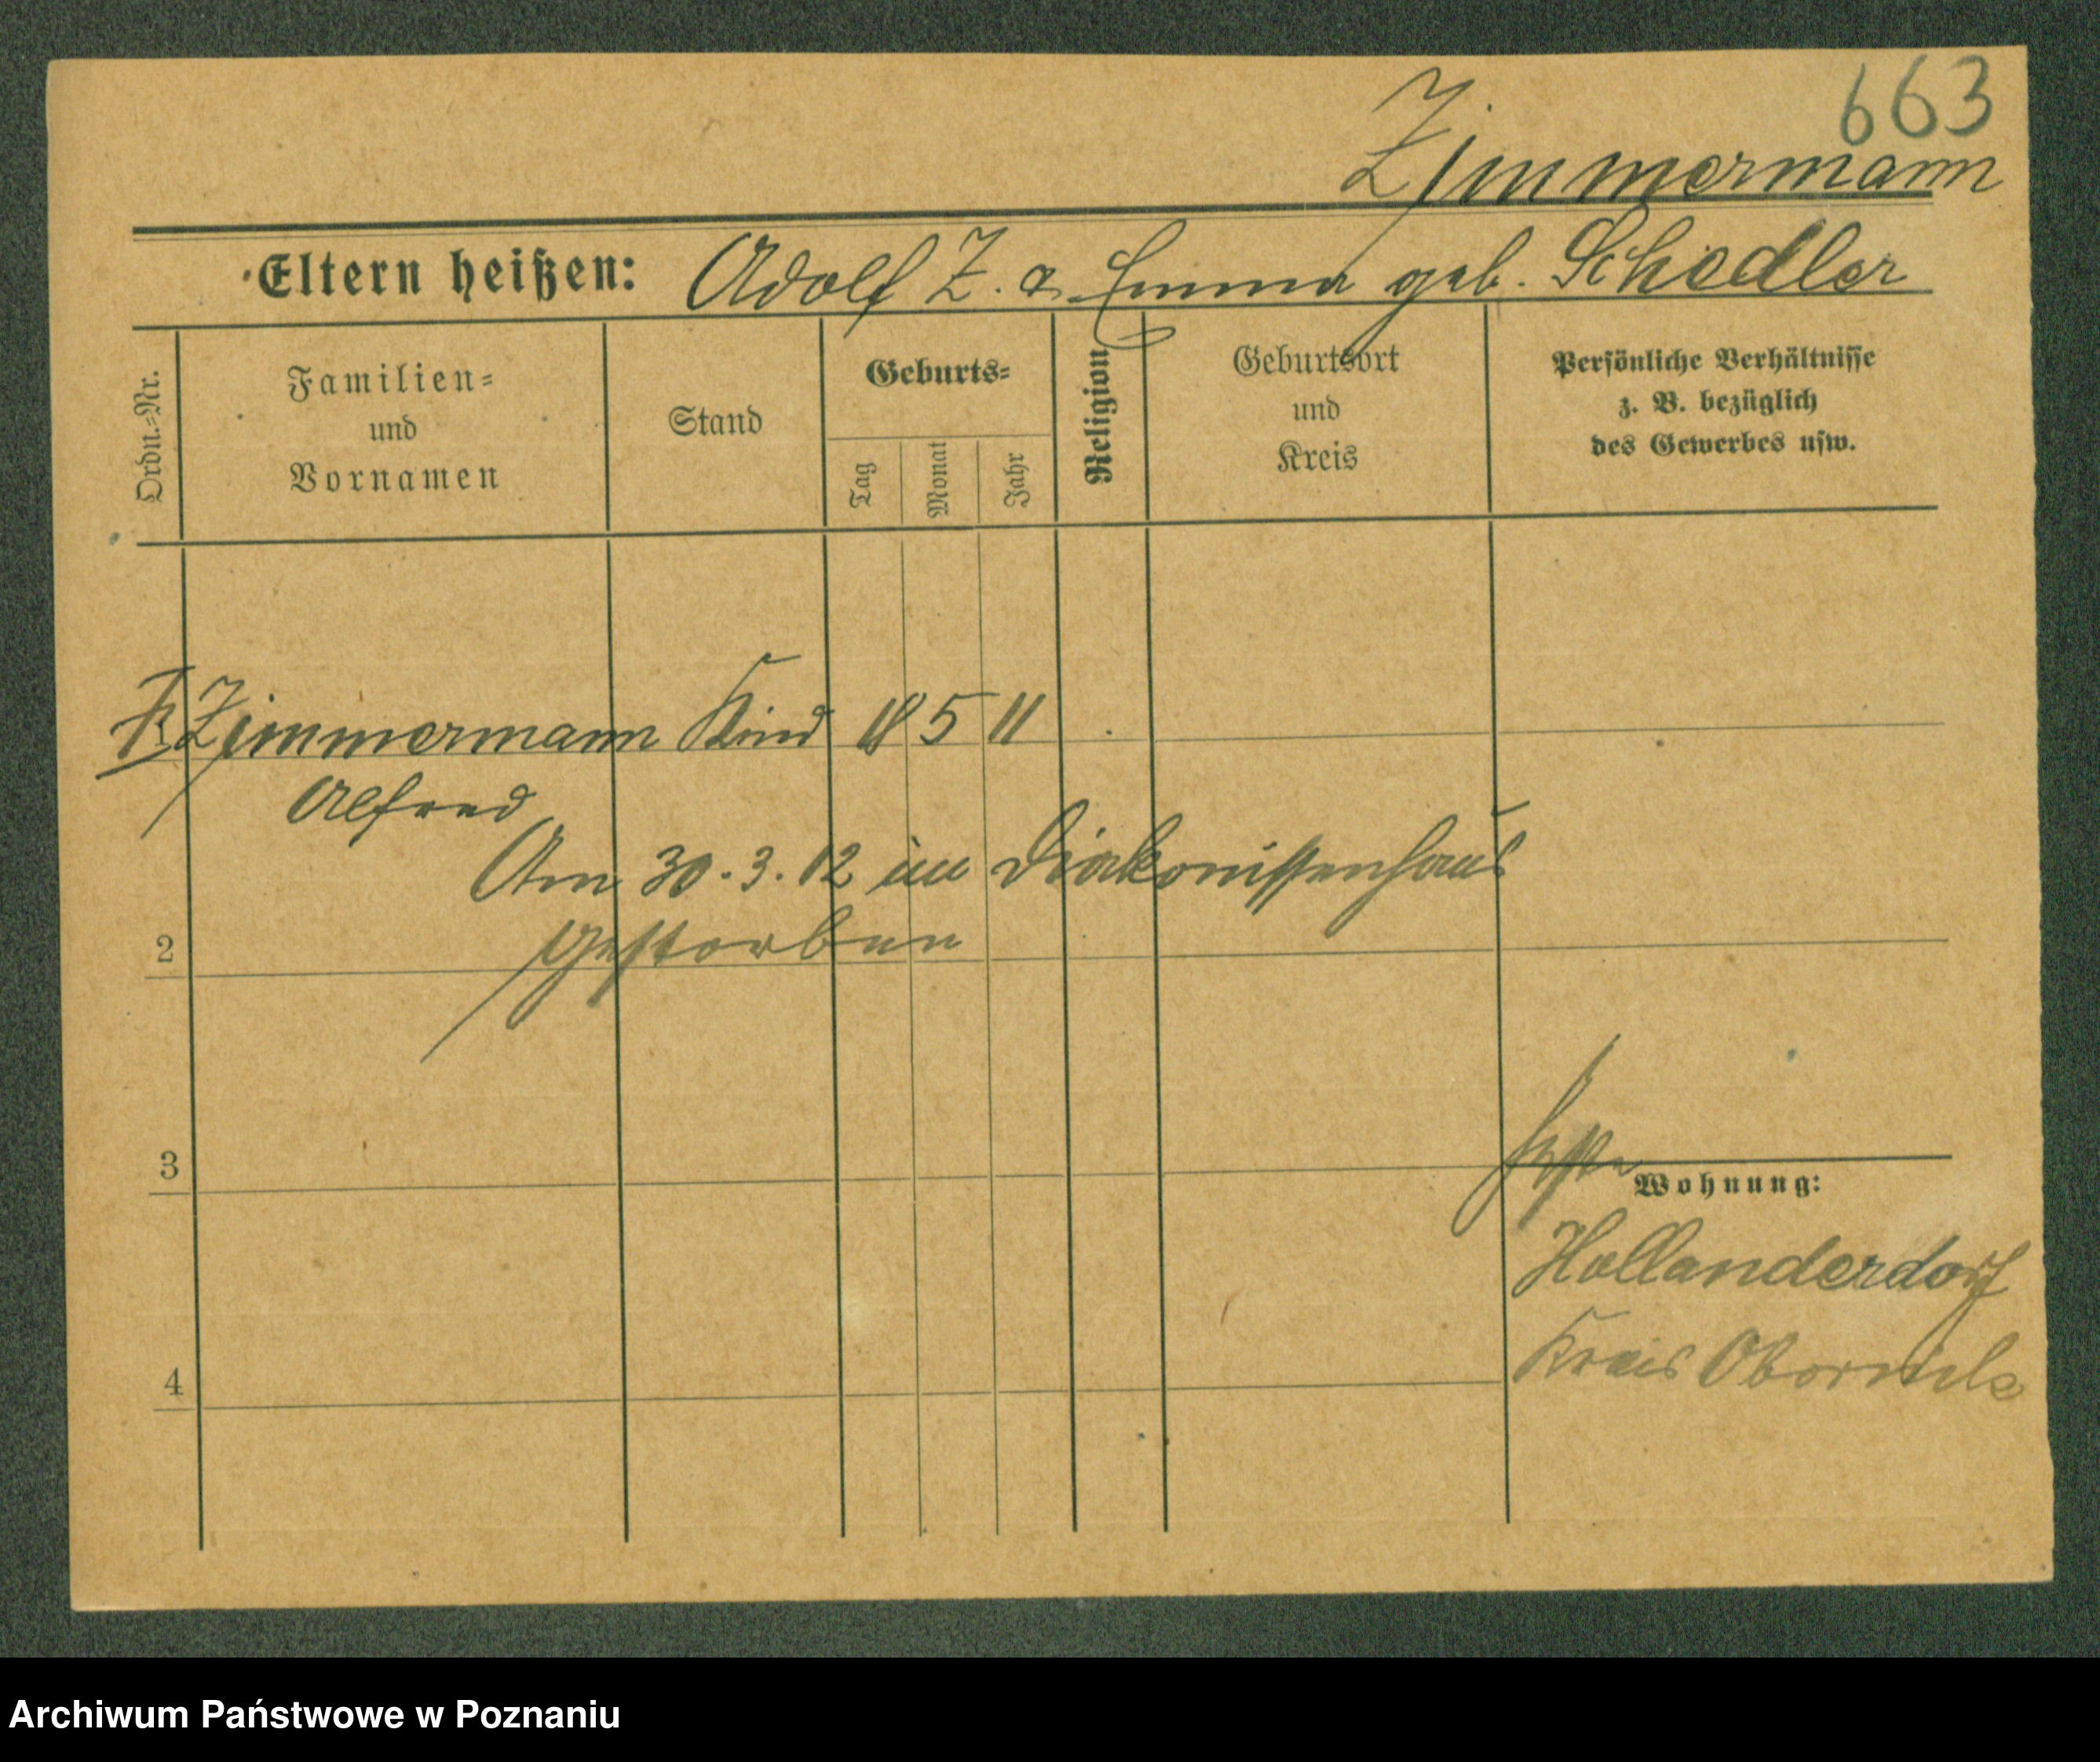 663
Zimmermann
Eltern heißen: Adolf Z. & Emma geb. Schedler
Ordn.-Nr.
Familien-
und
Vornamen
Stand
Geburts-
Tag
Monat
Jahr
Religion
Geburtsort
und
Kreis
Persönliche Verhältnisse
z. B. bezüglich
des Gewerbes usw.
Zimmermann Kind 18 5 11
Alfred
Am 30.3.12 im Diakonissenhaus
2
gestorben
3
Wohnung:
Hollanderdorf
Kreis
4
Archiwum Państwowe w Poznaniu